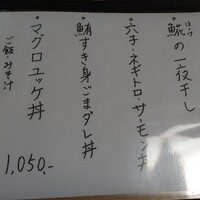 ・鯱の一夜干し
ほっけ
・穴子・ネギトロ・サーモン丼
・鮪すき身ごまダレ丼
・マグロユッケ丼
ご飯・みそ汁
1,050.-